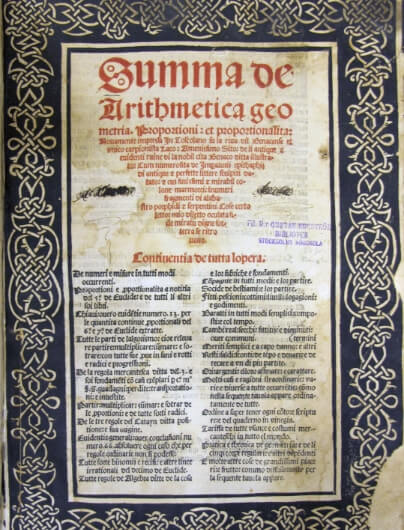 Summa de
Arithmetica geo
metria. Proportioni: et proportionalita:
Nouamente impressa In Toscolano su la riua dil Benacense et
unico carpionista Laco: Amenissimo Sito: de li antique &
euidenti ruine di la nobil cita Benaco ditta illustra
to: Cum numerosita de Imperatorij epithaphij
di antique & perfette littere sculpiti do
tato: & cum finissimi & mirabil co
lone marmorei: inumeri
fragmenti di alaba
stro porphidi & serpentini. Cose certo
lettor mio diletto oculata fi
de miratu digne sot
terra se ritro
uano.
STOCKHOLMS HÖGSKOLA
Continentia de tutta lopera.
De numeri e misure in tutti modi
occurrenti.
Proportioni e proportionalita a notitia
del 5° de Euclide e de tutti li altri
soi libri.
Chiaui ouero euidentie numero .13. per
le quantita continue proportionali del
6° e 7° de Euclide extratte.
Tutte le parti de lalgorismo: cioe releua
re partire multiplicar e sumare: e so
trare con tutte sue proue in sani e rotti
e radici e progressioni.
De la regola mercantesca ditta del .3. e
soi fondamenti
Partir multiplicar: sumar: e sotrar de
le proportioni e de tutte sorti radici.
De le tre regole del Catayn ditta po
sitione: e sua origine.
Euidentie generali ouer conclusioni nu
mero 66 absoluere ogni caso che per
regole ordinarie non si podesse.
Tutte sorte binomii e recisi e altre linee
irrationali del decimo de Euclide.
Tutte regole de Algebra ditte de la cosa
e lor fabriche e fondamenti.
Compagnie in tutti modi: e lor partire.
Socide de bestiami: e lor partire
Fitti: pesciõi: cottimi: liuelli: logagioni:
e godimenti.
Baratti in tutti modi semplici: compo
sti: e col tempo.
Cambi reali: secchi: fittitii: e diminuti:
ouer communi.
Meriti semplici e a capo danno: e altri
termini
Resti: saldi: sconti: de tempo e denari: e de
recare a un di piu partite.
Ori e argenti: e lor affinare: e carattare.
Molti casi e ragioni straordinarie: ua
rie e diuerse a tutte occurentie: como
nella sequente tauola appare ordinata
mente de tutte.
Ordine a saper tener ogni conto e scriptu
re e del quaderno in uinegia.
Tariffa de tutte usanze e costumi mer
cantesci in tutto el mondo.
Pratica e theorica de geometria: e de li
cinque corpi regulari e altri dependenti
E molte altre cose de grandissimi piace
ri: e frutto: commo diffusamente per
la sequente tauola appare.